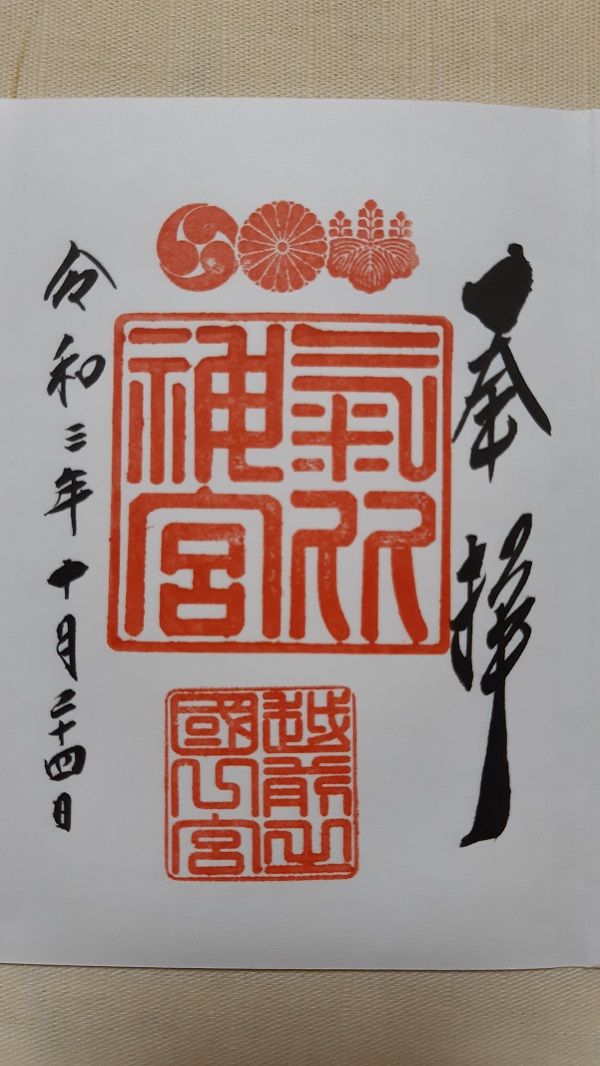 奉拝
氣比神宮
越前之國一宮
令和三年十月二十四日